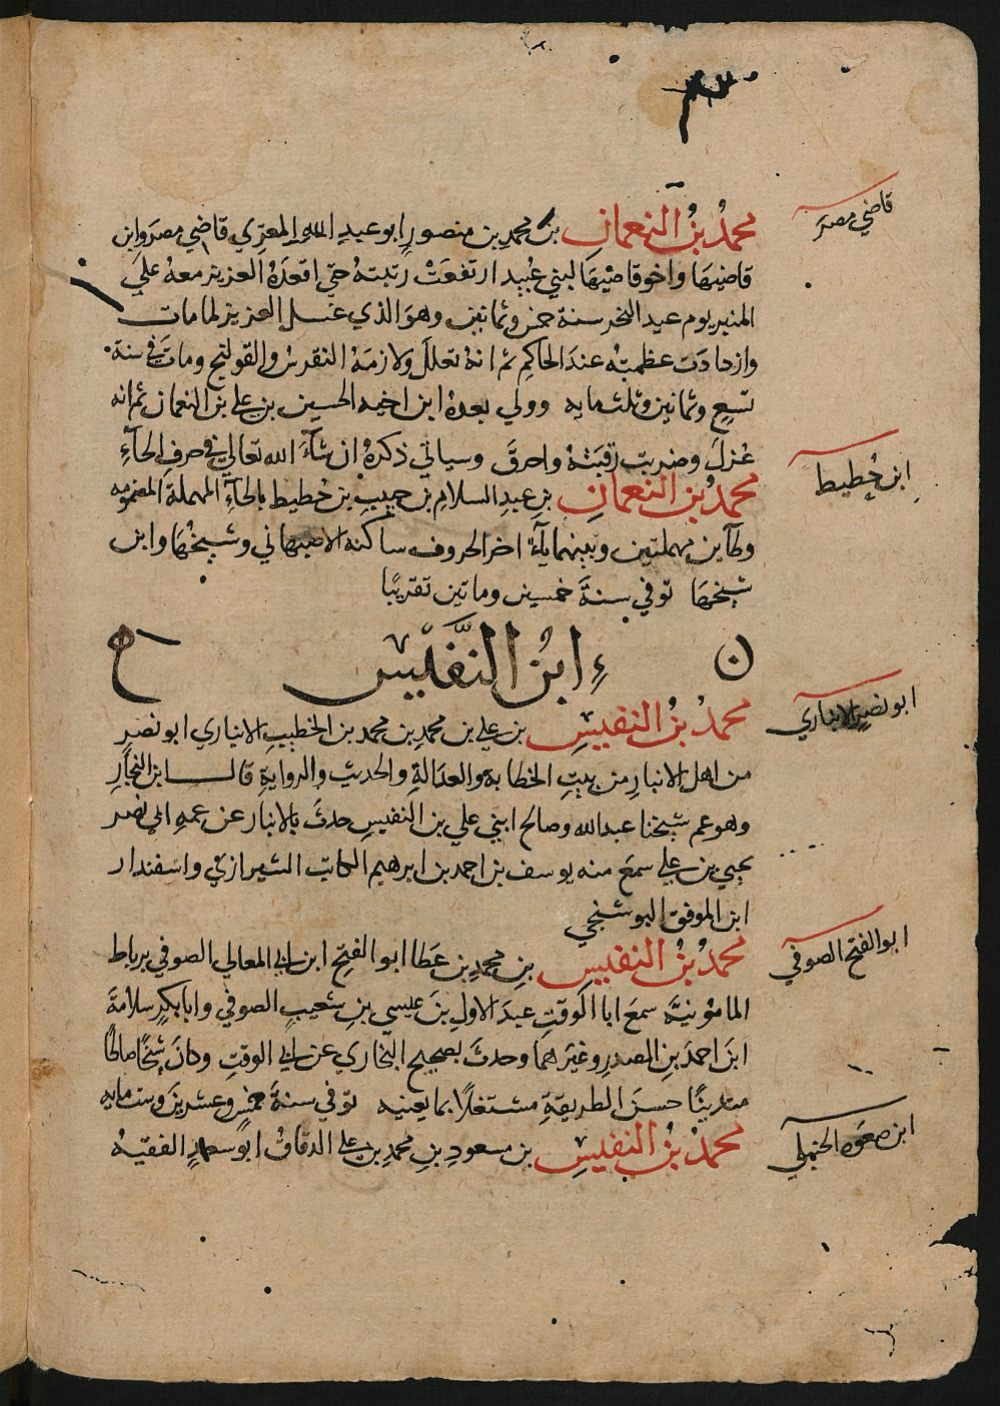 قاضي مصر
محمد بن النعمان بن محمد بن منصور ابو عبد الله المعزي قاضي مصر وابن
قاضيها واخو قاضيها لبني عبيد ارتفعت رتبته حتى اقعده العزيز معه على
المنبر يوم عيد النحر سنة خمس وثمانين وهو الذي غسل العزيز لما مات
وازدادت عظمته عند الحاكم ثم انه تعلل ولازمه النقرس والقولنج ومات في سنة
تسع وثمانين وثلثمايه وولي بعده ابن اخيه الحسين بن علي بن النعمان ثم انه
عزل وضربت رقبته واحرق وسياتي ذكره ان شآء الله تعالى في حرف الحآء
ابن حُطيط
محمد بن النعمان بن عبد السلام بن حبيب بن حُطيط بالحآء المهملة المضمومه
وطآين مهملتين وبينهما يآء اخر الحروف ساكنه الاصبهاني وشيخها وابن
شيخها توفي سنة خمسين وماتين تقريبًا
ابن النفيس
ابو نصر الانباري
محمد بن النفيس بن علي بن محمد بن محمد بن الخطيب الانباري ابو نصر
من اهل الانبار من بيت الخطابة والعدالة والحديث والرواية قال ابن النجار
وهو عم شيخنا عبد الله وصالح ابني علي بن النفيس حدث بالانبار عن عمه ابي نصر
يحيى بن علي سمع منه يوسف بن احمد بن ابرهيم الكاتب الشيرازي واسفندار
ابن الموفق البوشنجي
ابو الفتح الصوفي
محمد بن النفيس بن محمد بن عطا ابو الفتح ابن ابي المعالي الصوفي برباط
المامونيّة سمع ابا الوقت عبد الاول بن عيسى بن شعيب الصوفي وابا بكر سلامة
ابن احمد بن الصدر وغيرهما وحدث بصحيح البخاري عن ابي الوقت وكان شيخًا صالحًا
متدينًا حسن الطريقة مشتغلًا بما يعنيه توفي سنة خمس وعشرين وستمايه
ابن صعوه الحنبلي
محمد بن النفيس بن مسعود بن محمد بن علي الدقاق ابو سعد الفقيه